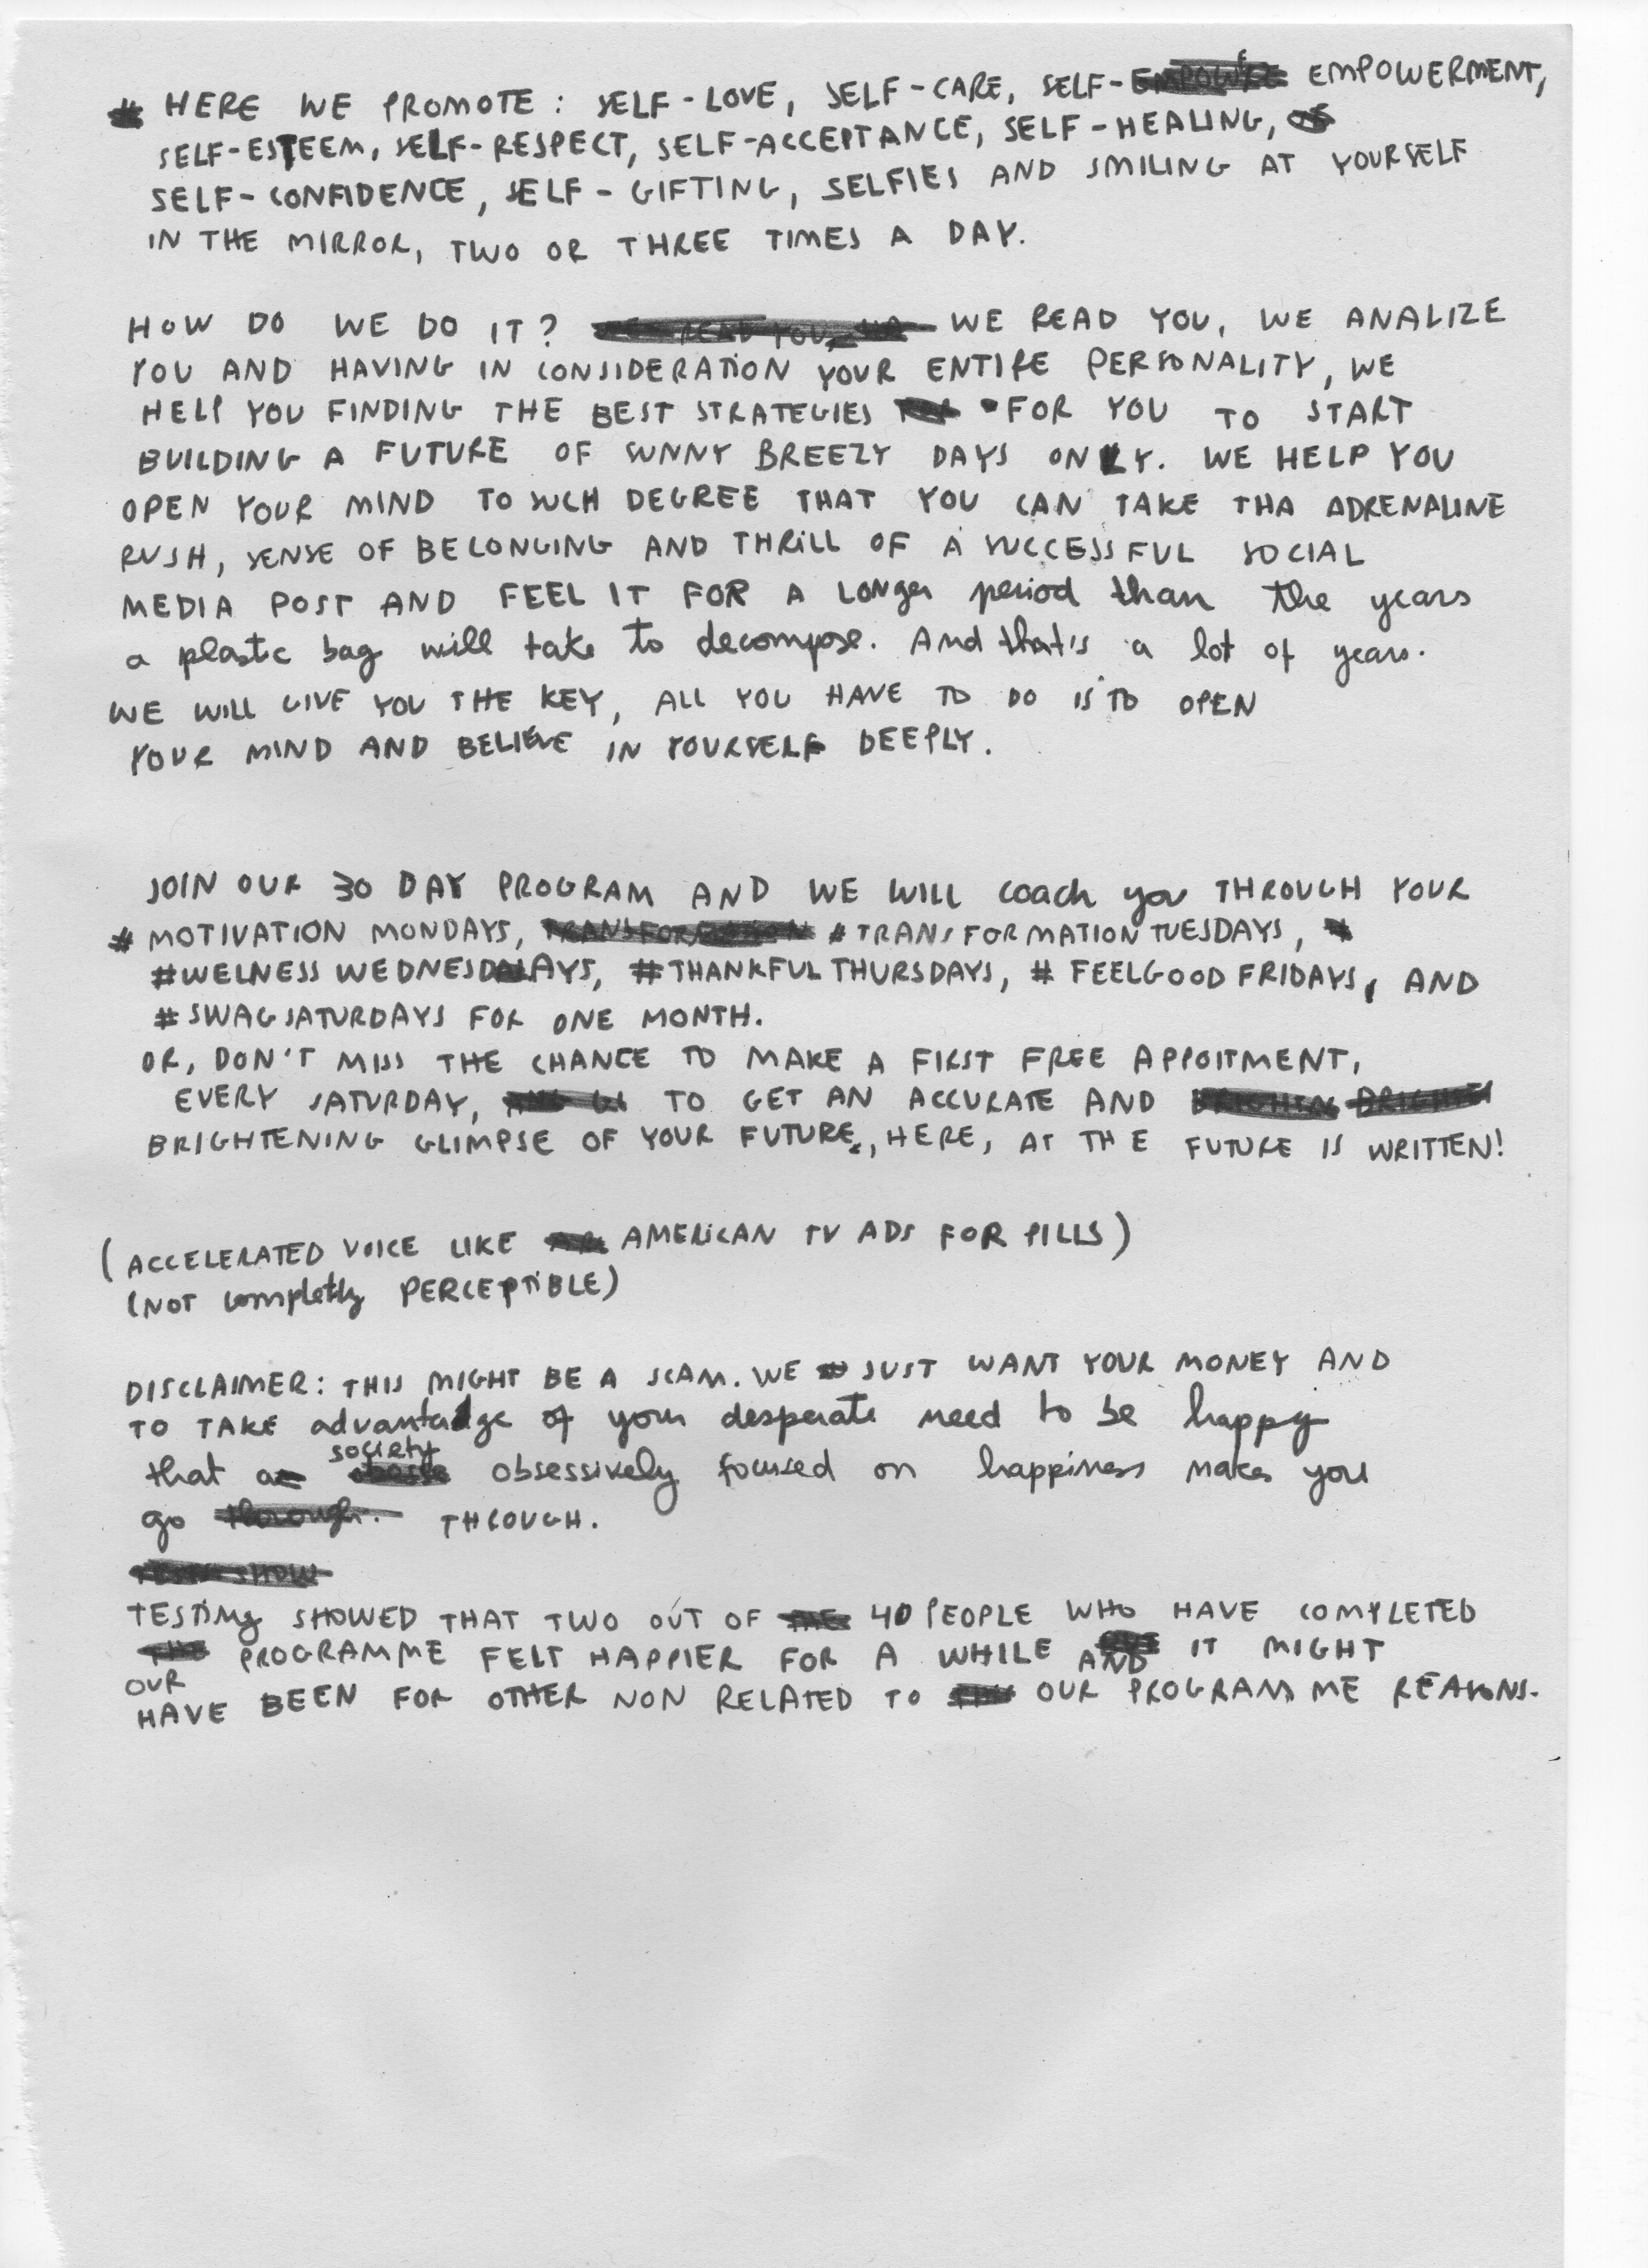 # HERE WE PROMOTE : SELF-LOVE, SELF-CARE, SELF- EMPOWERMENT,
SELF-ESTEEM, SELF-RESPECT, SELF-ACCEPTANCE, SELF-HEALING,
SELF-CONFIDENCE, SELF-GIFTING, SELFIES AND SMILING AT YOURSELF
IN THE MIRROR, TWO OR THREE TIMES A DAY.
HOW DO WE DO IT? WE READ YOU, WE ANALIZE
YOU AND HAVING IN CONSIDERATION YOUR ENTIRE PERSONALITY, WE
HELP YOU FINDING THE BEST STRATEGIES FOR YOU TO START
BUILDING A FUTURE OF SUNNY BREEZY DAYS ONLY. WE HELP YOU
OPEN YOUR MIND TO SUCH DEGREE THAT YOU CAN TAKE THA ADRENALINE
RUSH, SENSE OF BELONGING AND THRILL OF A SUCCESSFUL SOCIAL
MEDIA POST AND FEEL IT FOR A LONger period than the years
a plastic bag will take to decompose. And that's a lot of years.
WE WILL GIVE YOU THE KEY, ALL YOU HAVE TO DO IS TO OPEN
YOUR MIND AND BELIEVE IN YOURSELF DEEPLY.
JOIN OUR 30 DAY PROGRAM AND WE WILL coach you THROUGH YOUR
# MOTIVATION MONDAYS, # TRANSFORMATION TUESDAYS,
#WELNESS WEDNESDAYS, #THANKFUL THURSDAYS, # FEELGOOD FRIDAYS, AND
# SWAG SATURDAYS FOR ONE MONTH.
OR, DON'T MISS THE CHANCE TO MAKE A FIRST FREE APPOITMENT,
EVERY SATURDAY, TO GET AN ACCURATE AND
BRIGHTENING GLIMPSE OF YOUR FUTURE, HERE, AT THE FUTURE IS WRITTEN!
(ACCELERATED VOICE LIKE AMERICAN TV ADS FOR PILLS)
(NOT completly PERCEPTIBLE)
DISCLAIMER: THIS MIGHT BE A SCAM. WE JUST WANT YOUR MONEY AND
TO TAKE advantadge of your desperate need to be happy
that a society obsessively focused on happiness makes you
go THROUGH.
TESTing SHOWED THAT TWO OUT OF 40 PEOPLE WHO HAVE COMPLETED
OUR PROGRAMME FELT HAPPIER FOR A WHILE AND IT MIGHT
HAVE BEEN FOR OTHER NON RELATED TO OUR PROGRAMME REASONS.